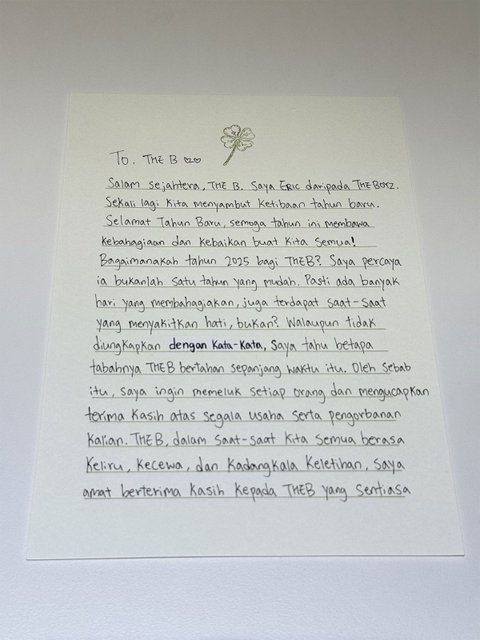 To. THE B ♡♡
Salam sejahtera, THE B. Saya ERIC daripada THE BOYZ.
Sekali lagi kita menyambut ketibaan tahun baru.
Selamat Tahun Baru, semoga tahun ini membawa
kebahagiaan dan kebaikan buat kita semua!
Bagaimanakah tahun 2025 bagi THEB? Saya percaya
ia bukanlah satu tahun yang mudah. Pasti ada banyak
hari yang membahagiakan, juga terdapat saat-saat
yang menyakitkan hati, bukan? Walaupun tidak
diungkapkan dengan kata-kata, saya tahu betapa
tabahnya THEB bertahan sepanjang waktu itu. Oleh sebab
itu, saya ingin memeluk setiap orang dan mengucapkan
terima kasih atas segala usaha serta pengorbanan
kalian. THEB, dalam saat-saat kita semua berasa
keliru, kecewa, dan kadangkala keletihan, saya
amat berterima kasih kepada THEB yang sentiasa